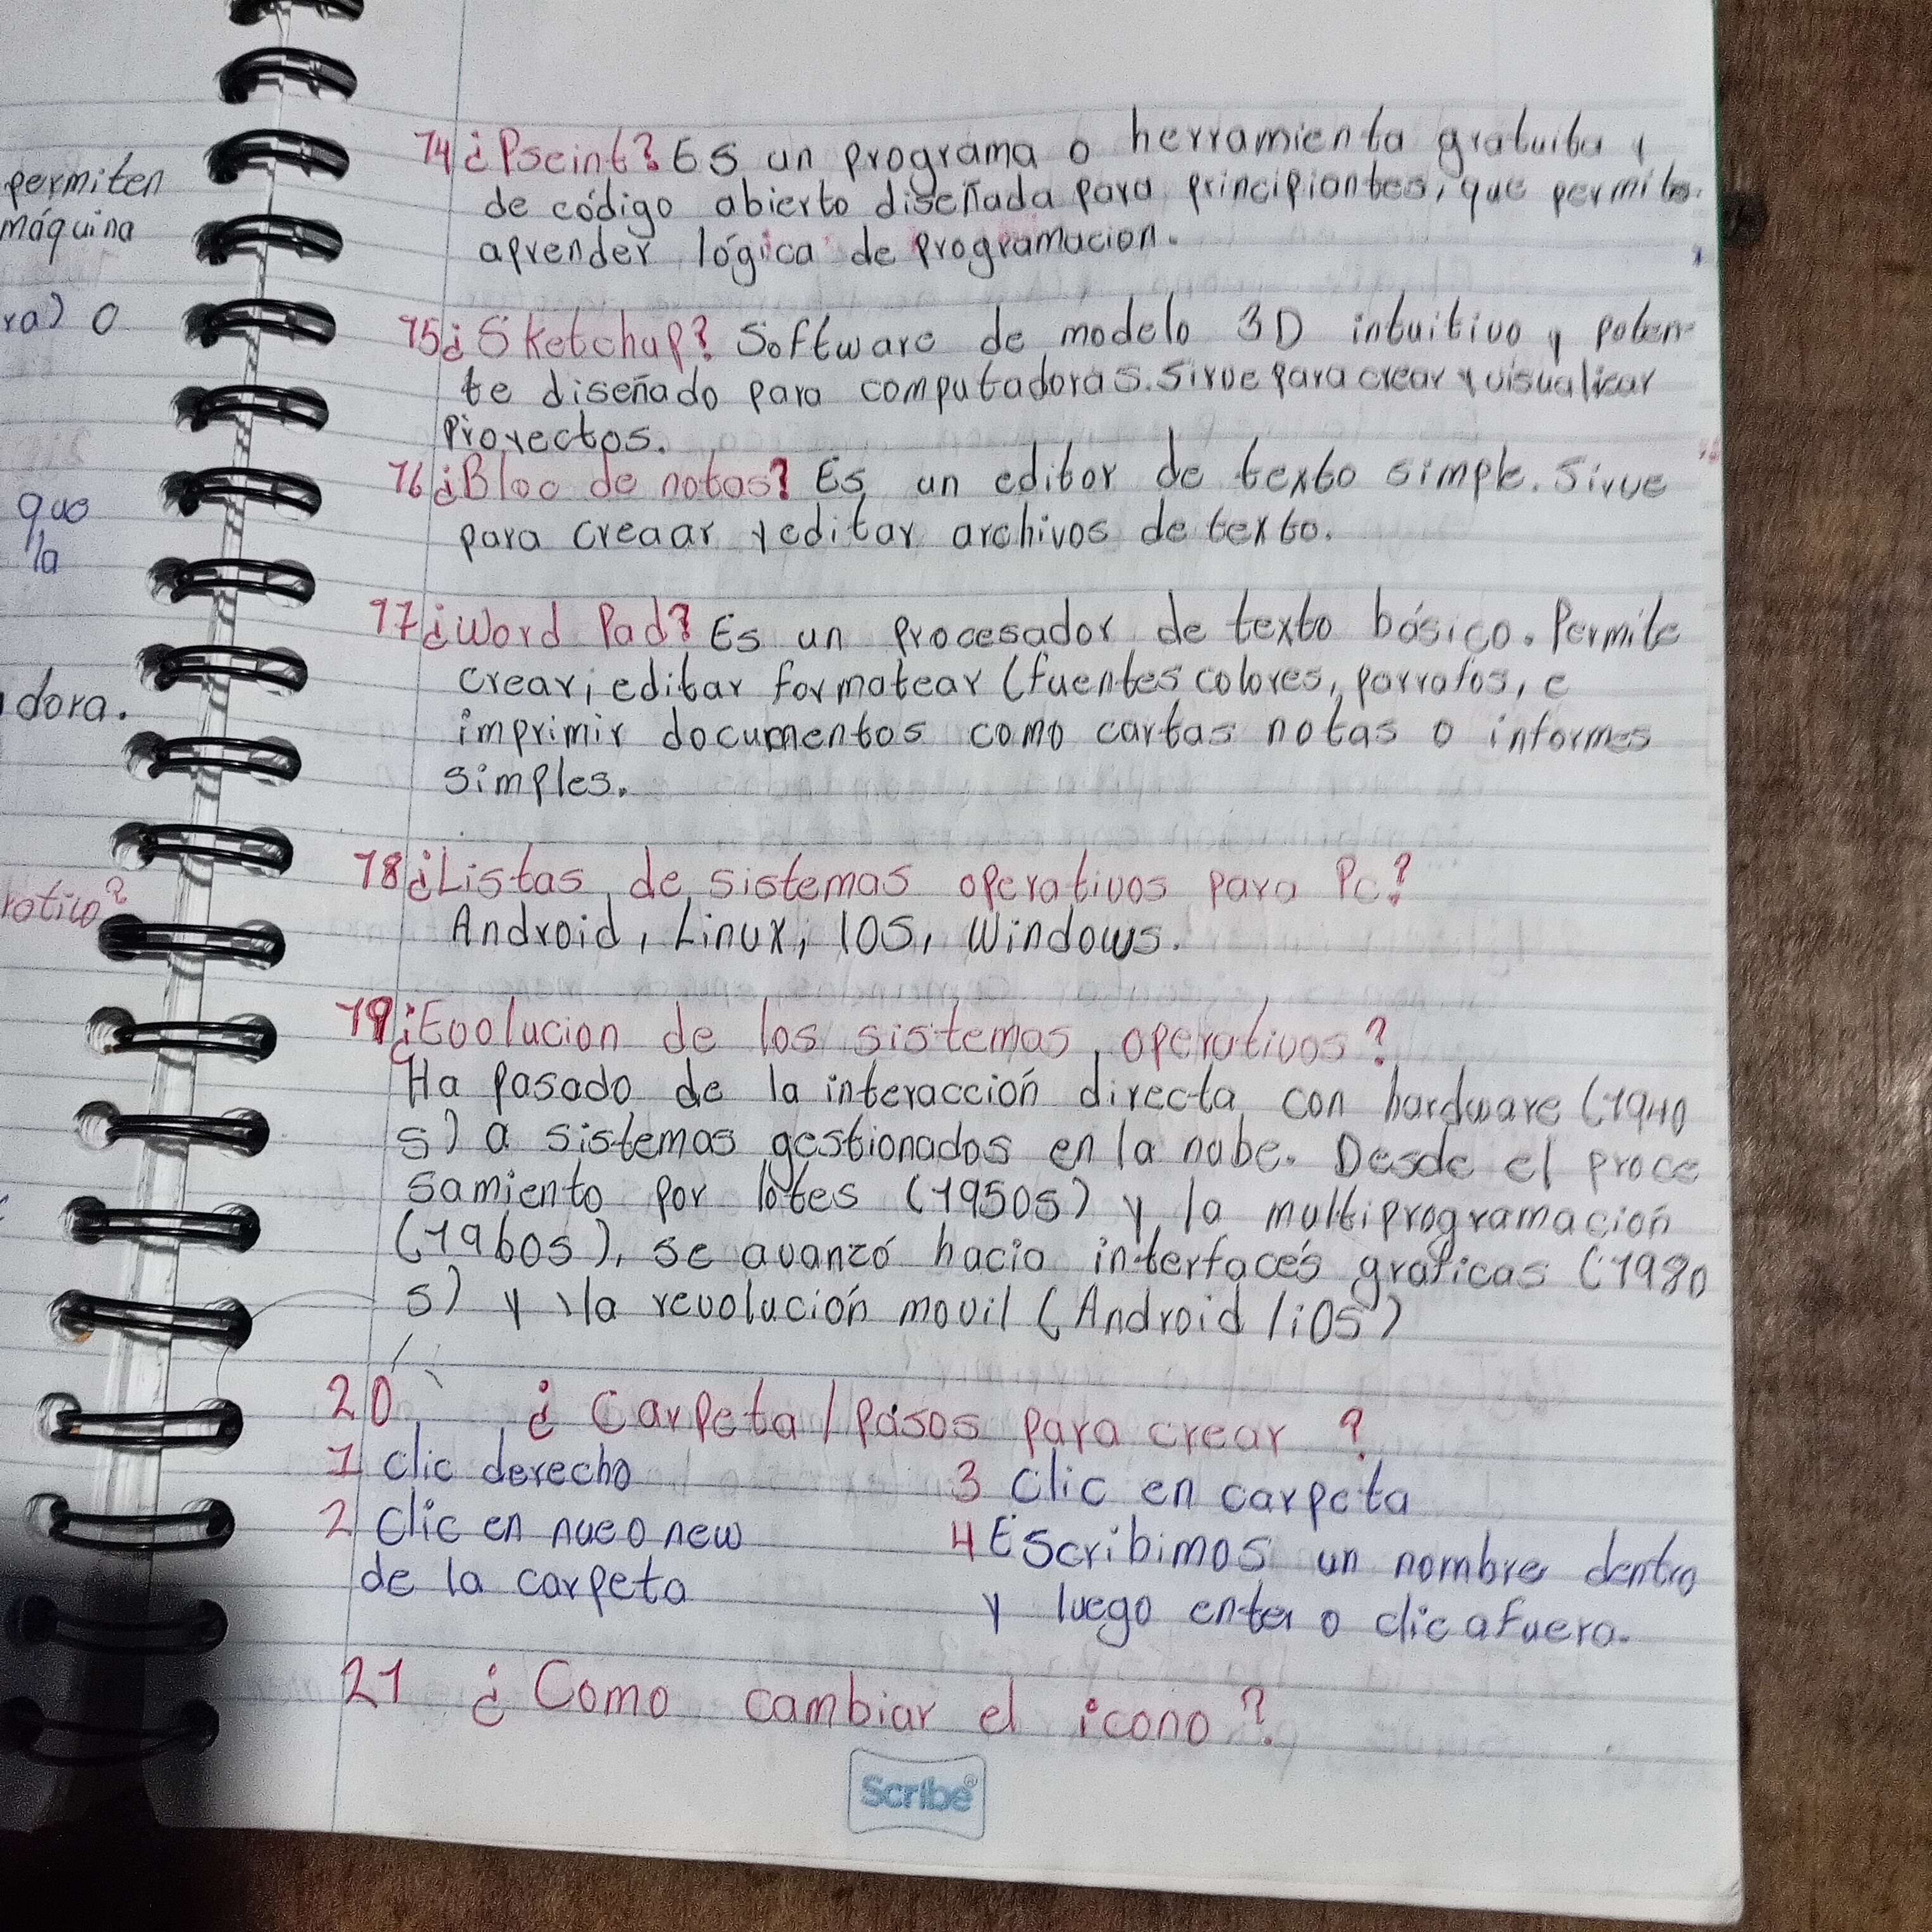 permiten
máquina
ra) o
que
la
dora.
rotico?
14 ¿Pseint? Es un programa o herramienta gratuita y
de código abierto diseñada para principiantes, que permite
aprender lógica de programacion.
15 ¿Sketchup? Software de modelo 3D intuitivo y poten-
te diseñado para computadoras. Sirve para crear y visualicar
Proyectos.
16 ¿Bloc de notas? Es un editor de texto simple. Sirve
para creaar y editar archivos de texto.
17 ¿Word Pad? Es un Procesador de texto básico. Permite
crear, editar formatear (fuentes colores, parrafos, e
imprimir documentos como cartas notas o informes
simples.
18 ¿Listas de sistemas operativos para Pc?
Android, Linux, IOS, Windows.
19 ¿Evolucion de los sistemas operativos?
Ha pasado de la interacción directa con hardware (1940
s) a sistemas gestionados en la nube. Desde el proce
samiento por lotes (1950s) y la multiprogramación
(1960s), se avanzó hacia interfaces graficas (1980
s) y la revolución movil (Android/iOS)
20 ¿Carpeta/Pasos para crear?
1 clic derecho
2 Clic en nueo new
de la carpeta
3 Clic en carpeta
4 Escribimos un nombre dentro
y luego enter o clic afuera.
21 ¿Como cambiar el icono?
Scribe®